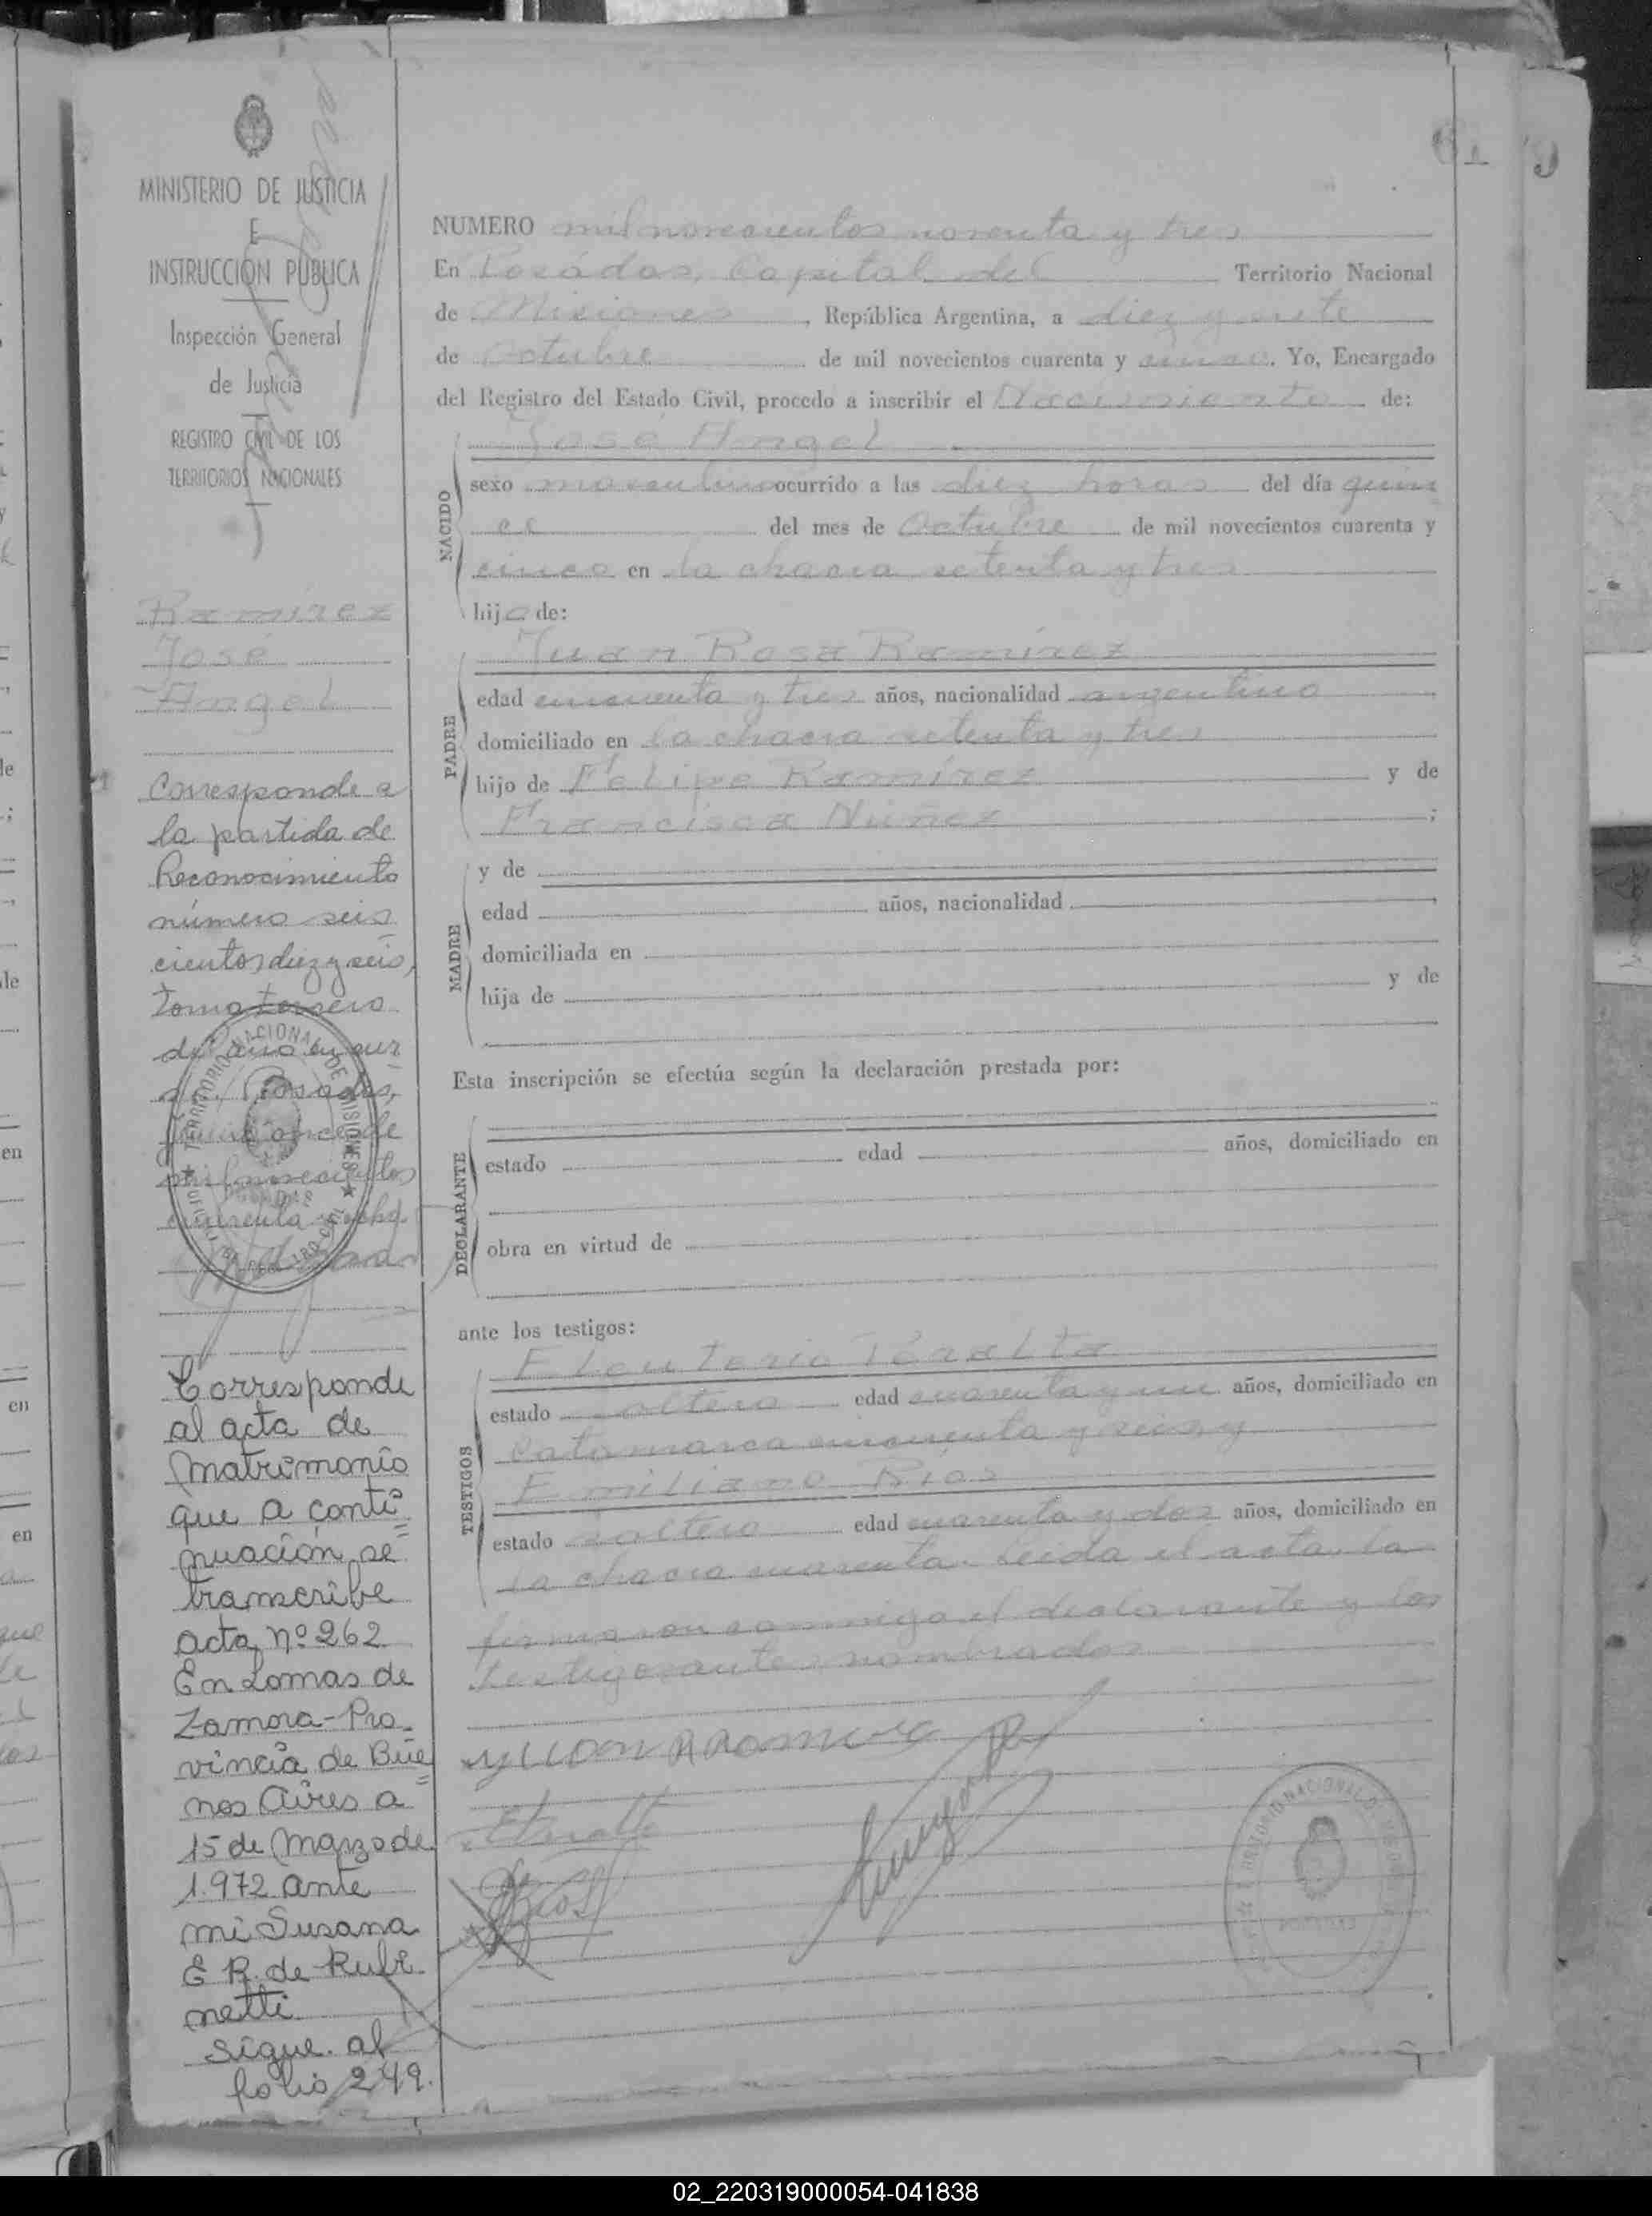 MINISTERIO DE JUSTICIA
E
INSTRUCCION PUBLICA
Inspección General
de Justicia
REGISTRO CIVIL DE LOS
TERRITORIOS NACIONALES
Ramírez
José
Angel
Corresponde a
la partida de
Reconocimiento
número seis
cientos diez y seis,
tomo tercero
del año en cur
so. Posadas,
junio once de
mil novecientos
cuarenta y ocho.
Corresponde
al acta de
Matrimonio
que a conti
nuación se
transcribe
acta nº 262
En Lomas de
Zamora-Pro-
vincia de Bue
nos Aires a
15 de Marzo de
1.972 ante
mi Susana
E R. de Rubi-
netti
sigue al
folio 249.
61
NUMERO mil novecientos noventa y tres
En Posadas, Capital del Territorio Nacional
de Misiones, República Argentina, a diez y siete
de Octubre de mil novecientos cuarenta y cinco. Yo, Encargado
del Registro del Estado Civil, procedo a inscribir el Nacimiento de:
José Angel
NACIDO
sexo masculino ocurrido a las diez horas del día quin
ce del mes de Octubre de mil novecientos cuarenta y
cinco en la chacra setenta y tres
hijo de:
Juan Rosa Ramírez
PADRE
edad cincuenta y tres años, nacionalidad argentino
domiciliado en la chacra setenta y tres
hijo de Felipe Ramírez y de
Francisca Núñez ;
MADRE
y de
edad años, nacionalidad
domiciliada en
hija de y de
Esta inscripción se efectúa según la declaración prestada por:
DECLARANTE
estado edad años, domiciliado en
obra en virtud de
ante los testigos:
TESTIGOS
Eleuterio Peralta
estado soltero edad cuarenta y un años, domiciliado en
Catamarca cincuenta y seis y
Emiliano Ríos
estado soltero edad cuarenta y dos años, domiciliado en
la chacra cuarenta. Leida el acta la
firmaron conmigo el declarante y los
testigos antes nombrados
02_220319000054-041838